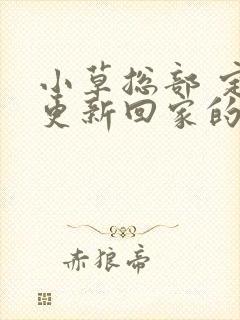 小草总部 定
更新回家的
赤狼帝